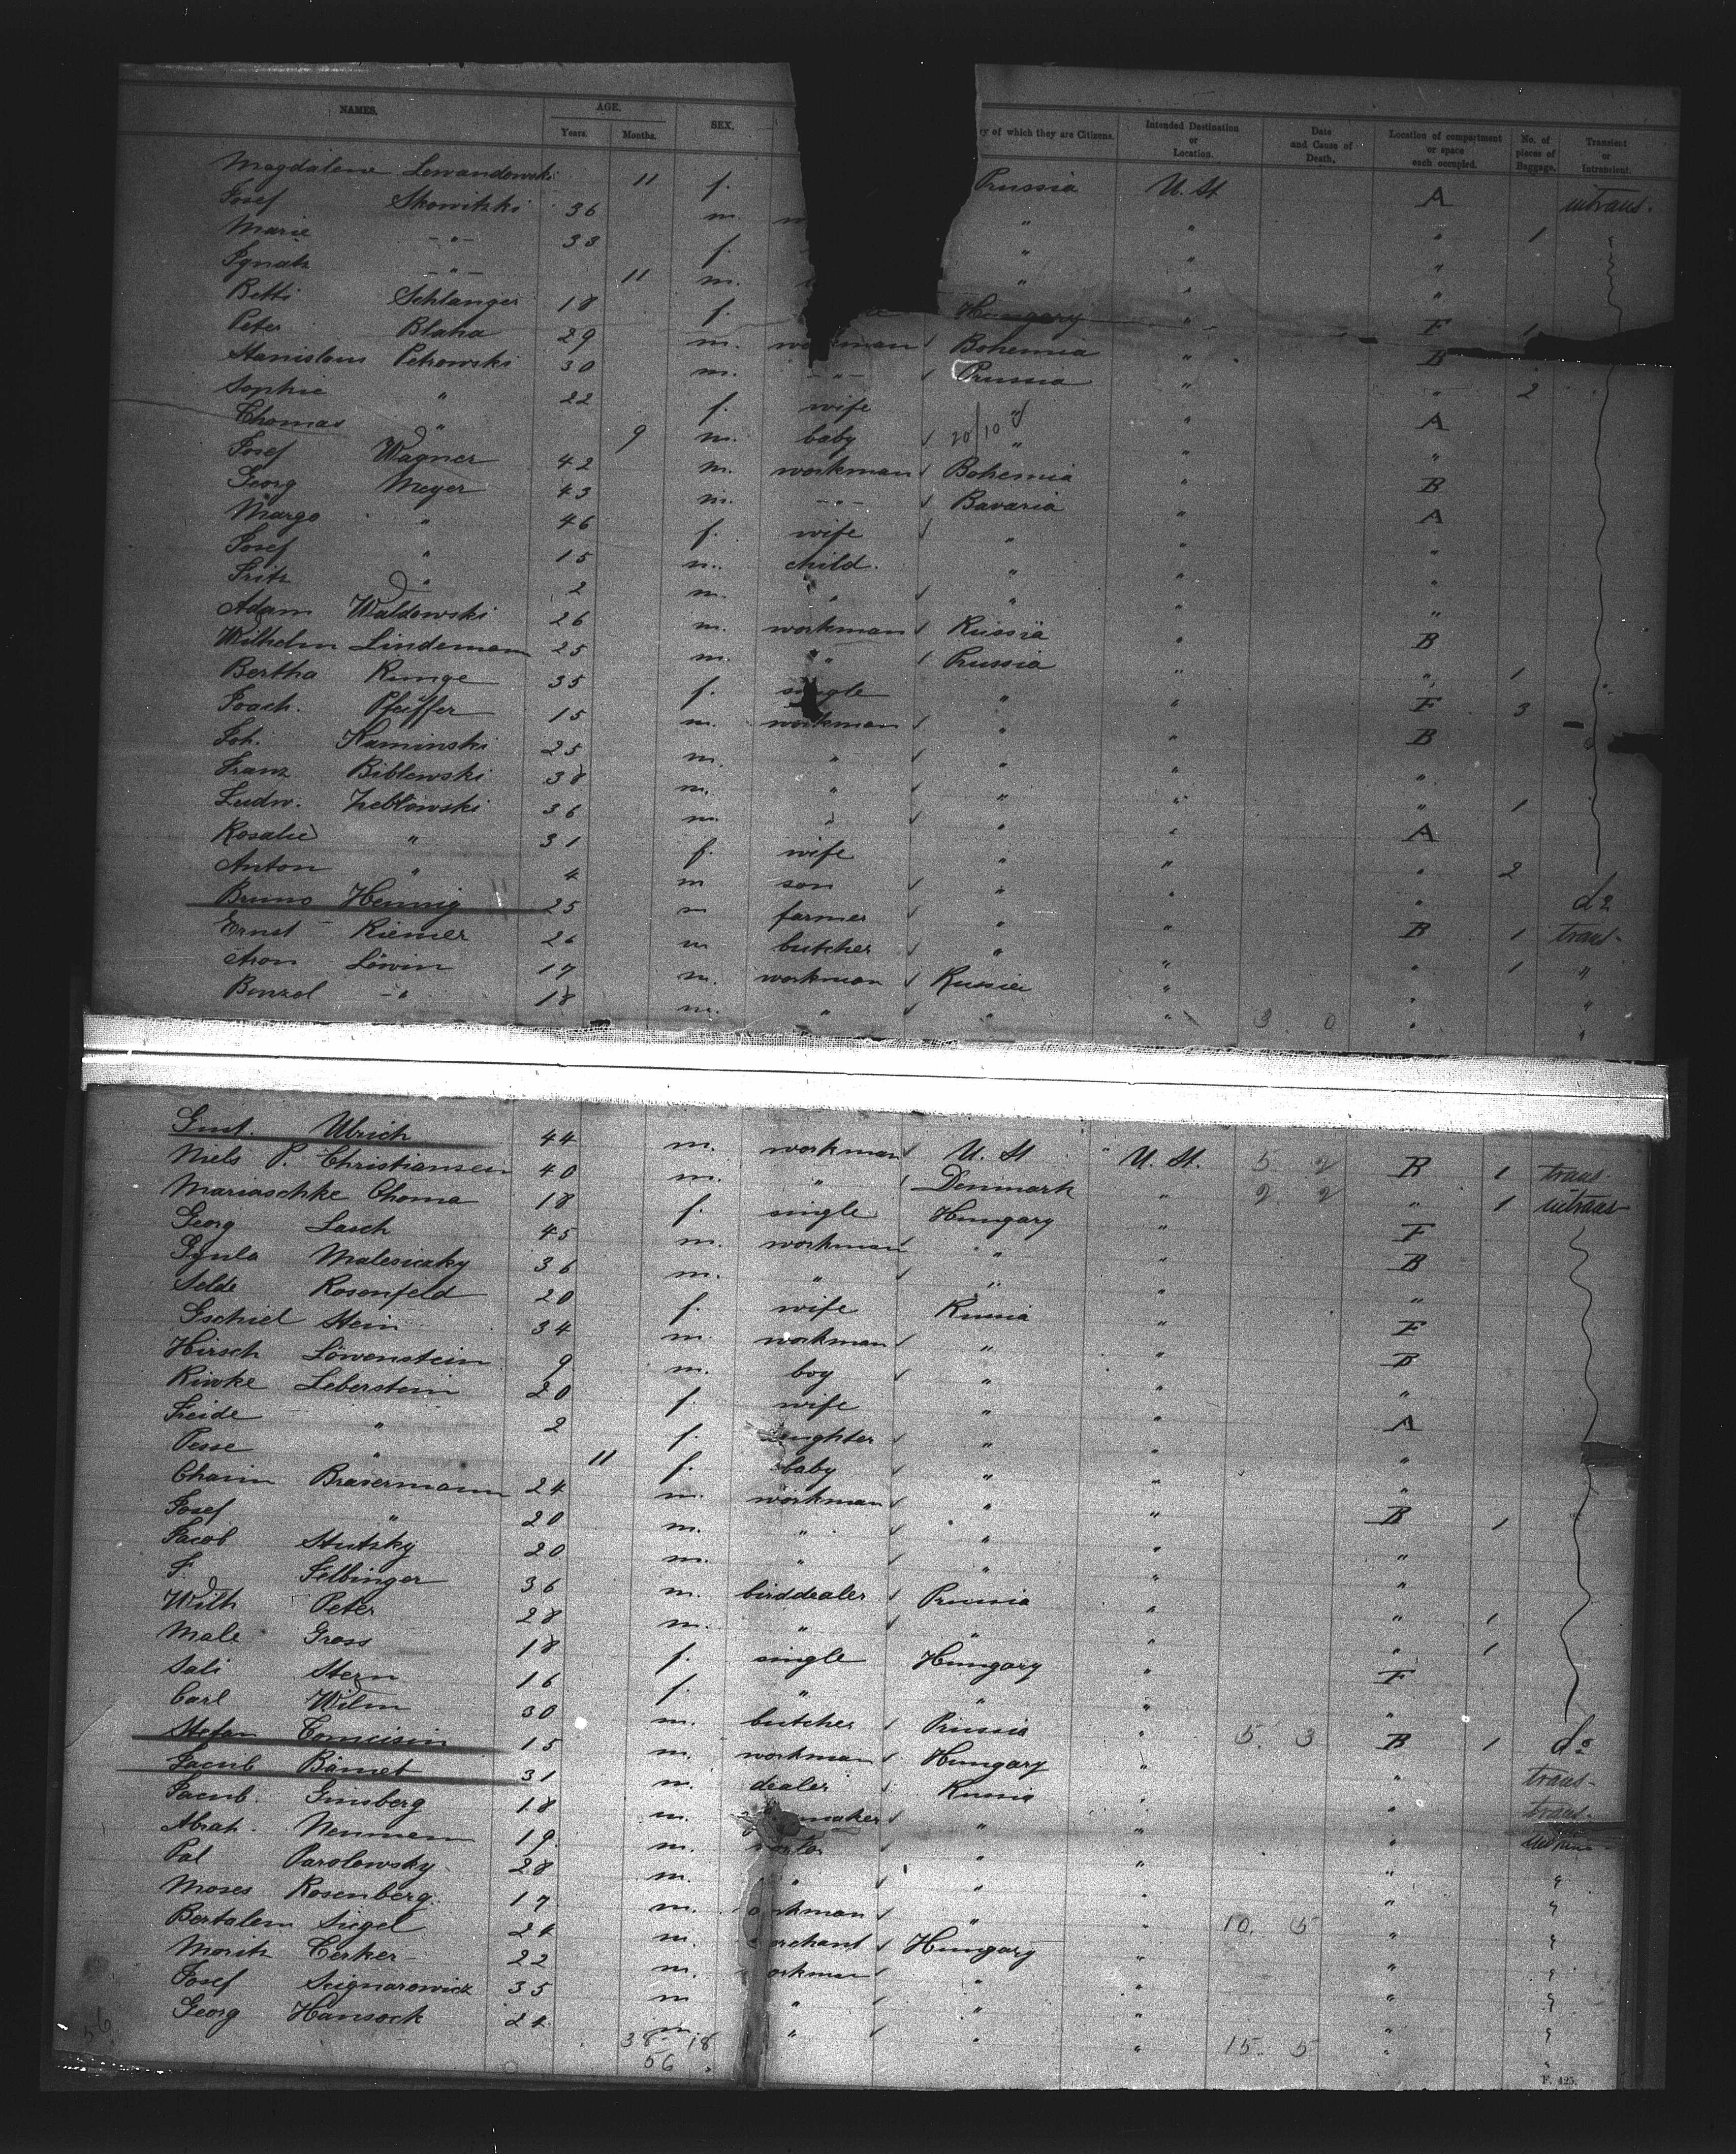 NAMES. AGE. Years. Months. SEX. y of which they are Citizens. Intended Destination or Location. Date and Cause of Death. Location of compartment or space each occupied. No. of pieces of Baggage. Transient or Intransient.
Magdalene Lewandowski 11 f. Prussia U. St A intrans.
Josef Skowitzki 36 m. " " " 1
Marie -"- 33 f. " " "
Ignatz -"- 11 m. " " "
Betti Schlanger 18 f. Hungary " F 1
Peter Blaha 29 m. workman Bohemia " B
Stanislaus Petrowski 30 m. -"- Prussia " " 2
Sophie " 22 f. wife " " A
Thomas " 9 m. baby 20/10 " " "
Josef Wagner 42 m. workman Bohemia " B
Georg Meyer 43 m. -"- Bavaria " A
Margo " 46 f. wife " " "
Josef " 15 m. child. " " "
Fritz " 2 m. " " " "
Adam Waldowski 26 m. workman Russia " B
Wilhelm Lindeman 25 m. " Prussia " " 1
Bertha Runge 35 f. single " " F 3
Joach. Pfeiffer 15 m. workman " " B
Joh. Kaminski 25 m. " " " "
Franz Biblewski 38 m. " " " " 1
Ludw. Zeblowski 36 m. " " " A
Rosalie " 31 f. wife " " " 2
Anton " 4 m son " " " do
Bruno Hennig 25 m farmer " " B 1 trans-
Ernst Riemer 26 m butcher " " " 1 "
Aron Löwin 17 m. workman Russia " " "
Benzel -" 18 m. " " " 3 0 " "
Gust. Ulrich 44 m. workman U. St U. St. 5 2 B 1 trans.
Niels P. Christiansen 40 m. " Denmark " 2 2 " 1 intrans
Mariaschke Choma 18 f. single Hungary " F
Georg Lasch 45 m. workman " " B
Gyula Malesiczky 36 m. " " " "
Selde Rosenfeld 20 f. wife Russia " F
Gschiel Stein 34 m. workman " " B
Hirsch Löwenstein 9 m. boy " " "
Riwke Leberstein 20 f. wife " " A
Freide " 2 f. daughter " " "
Pesse " 11 f. baby " " "
Chaim Brasermann 24 m. workman " " B 1
Josef " 20 m. " " " "
Jacob Stutzky 20 m. " " " "
F. Selbinger 36 m. birddealer Prussia " " 1
Wilh Peter 28 m. " " " " 1
Male Gross 18 f. single Hungary " F
Sali Stern 16 f. " " " "
Carl Wilm 30 m. butcher Prussia " 5. 3 B 1 do
Stefan Tomcisin 15 m. workman Hungary " " trans-
Jacub Bamet 31 m. dealer Russia " " trans.
Jacub. Ginsberg 18 m. maker " " "
Abrah. Neumann 19 m. " " " "
Pal Parolowsky 28 m. " " " " "
Moses Rosenberg. 17 m. orkman " " 10. 5 " "
Bertalem Siegel 24 m. erchant Hungary " " "
Moritz Cerker 22 m. orkman " " " "
Josef Signarowicz 35 m " " " " "
Georg Hansock 24 m " " " 15. 5 " "
56 38 18
56
F. 425.